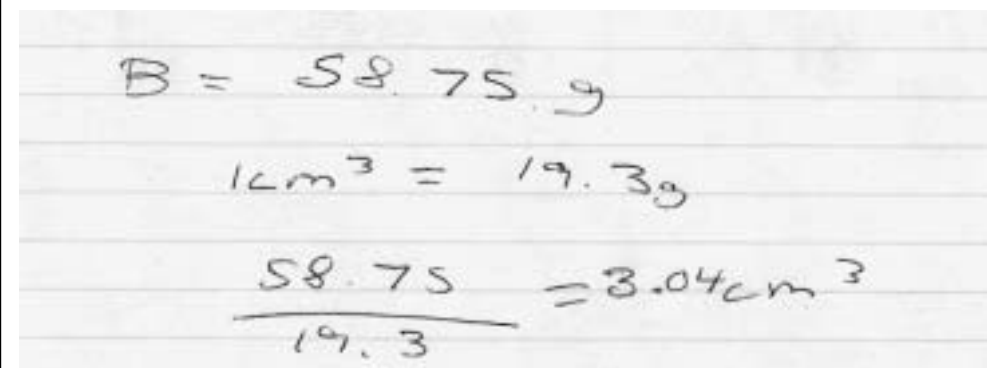 B = 58.75.g
1cm³ = 19.3g
58.75
19.3
=3.04cm³